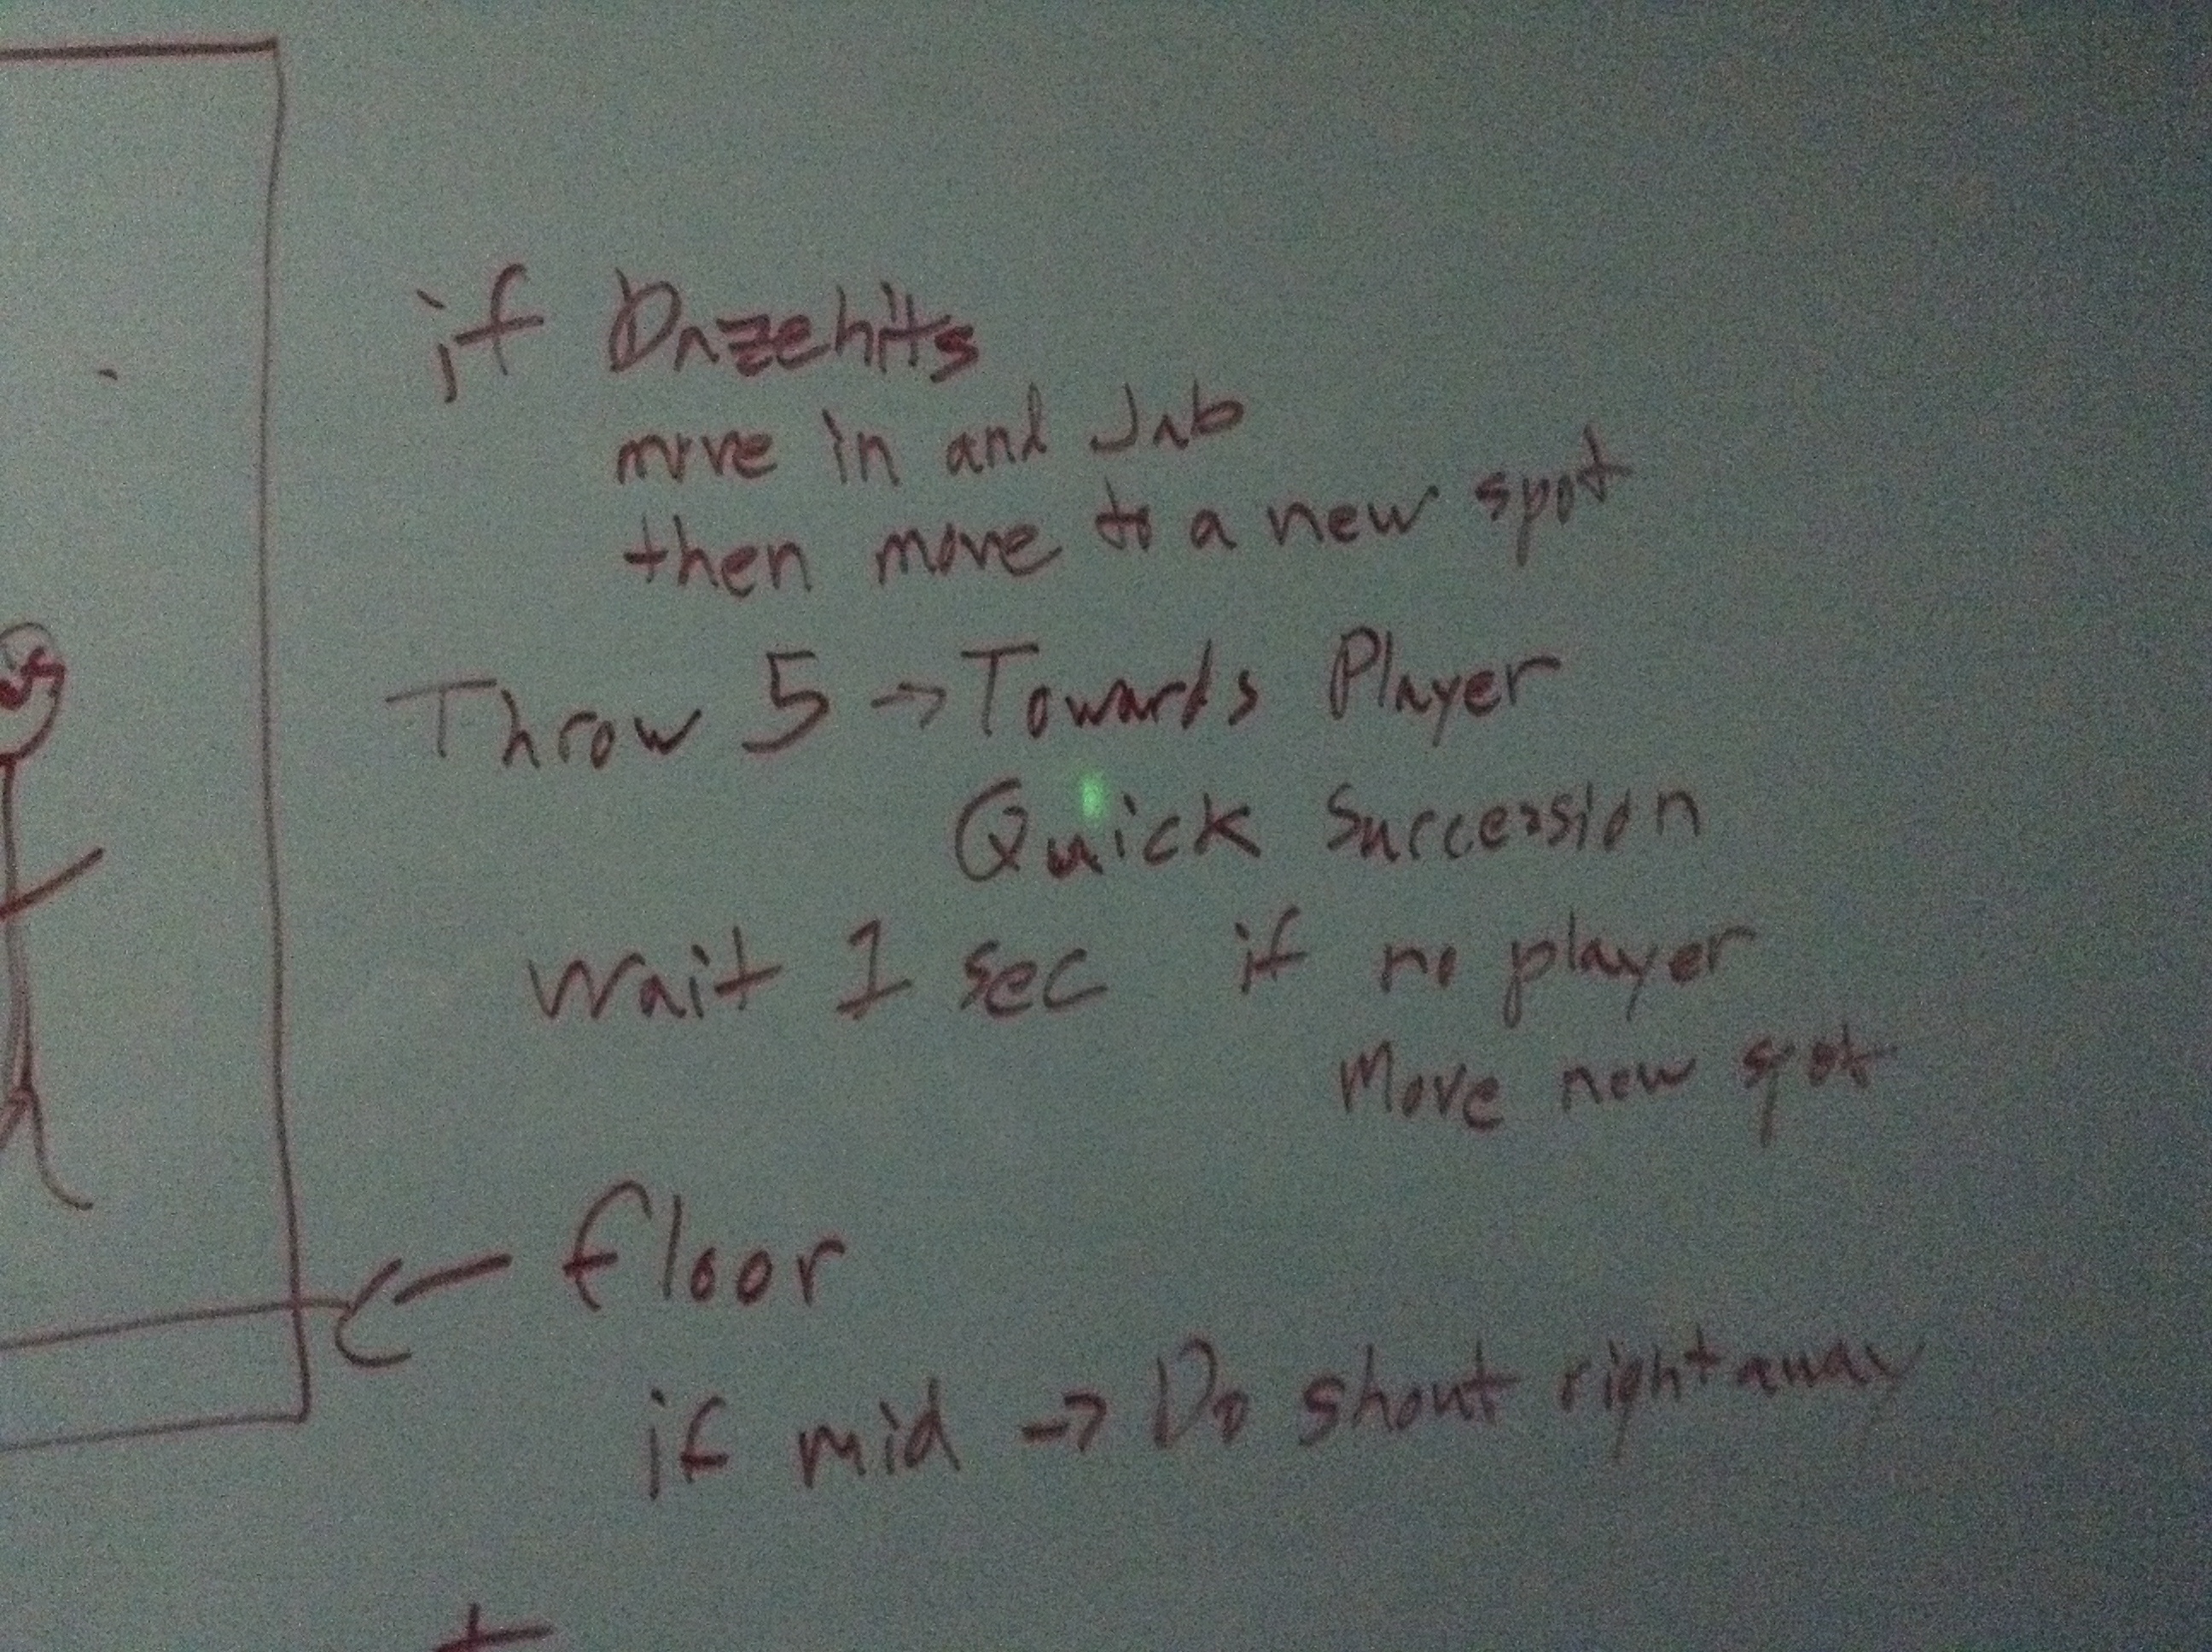 if Dazehits
move in and Jab
then move to a new spot
Throw 5 → Towards Player
Quick Succession
Wait 1 sec if no player
Move new spot
← floor
if mid → Do shout right away